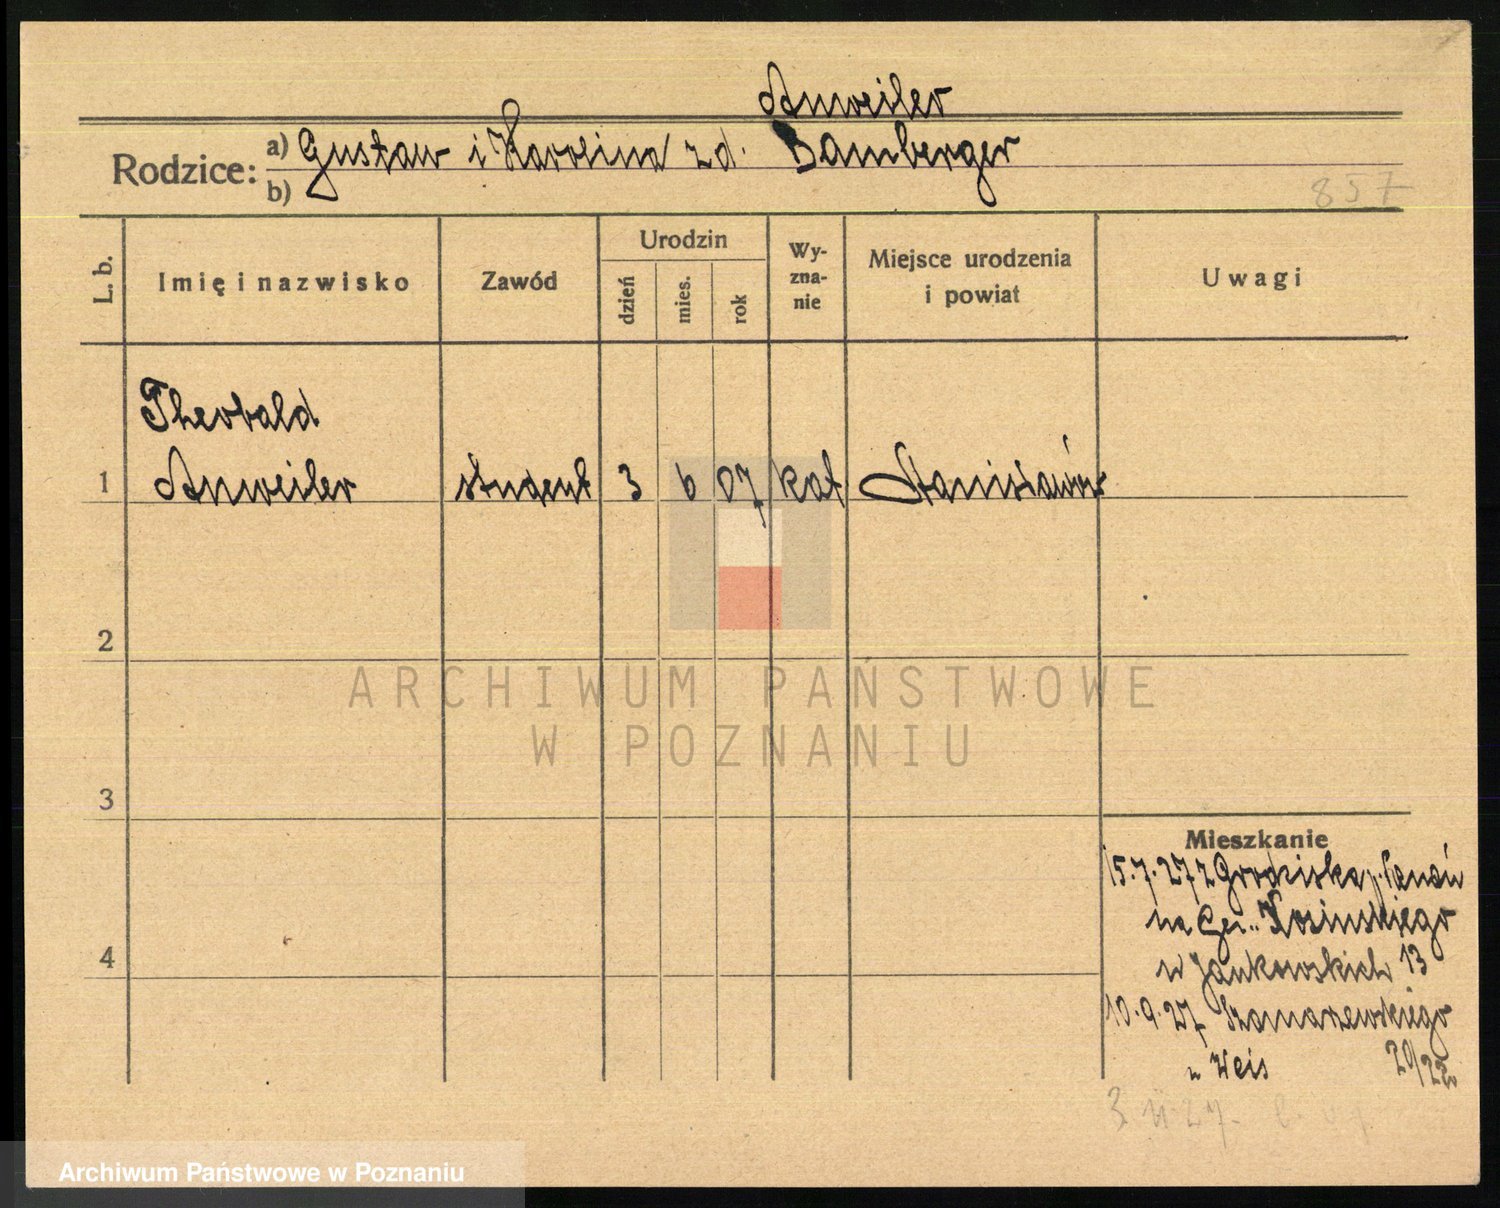 Anweiler
Rodzice: a) Gustaw i Karolina z d. Bamberger
b)
857
L. b.
Imię i nazwisko
Zawód
Urodzin
dzień
mies.
rok
Wy-
zna-
nie
Miejsce urodzenia
i powiat
Uwagi
Theobald
1 Anweiler student 3 6 07 kat Stanisławów
2
ARCHIWUM PAŃSTWOWE
W POZNANIU
3
Mieszkanie
15.7.27 z Grodziska
na Kosińskiego
4
u Jankowskich 13
10.9.27 Szamarzewskiego
u Weis 20/22
3 27
Archiwum Państwowe w Poznaniu